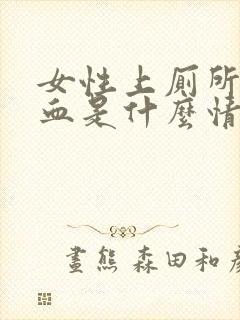 女性上厕所
血是什麼情
畫熊 森田和彥